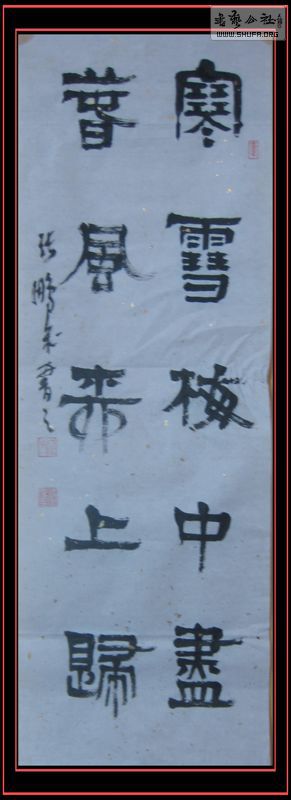 書藝公社
WWW.SHUFA.ORG
寒雪梅中盡
春風柳上歸
张鵬書之